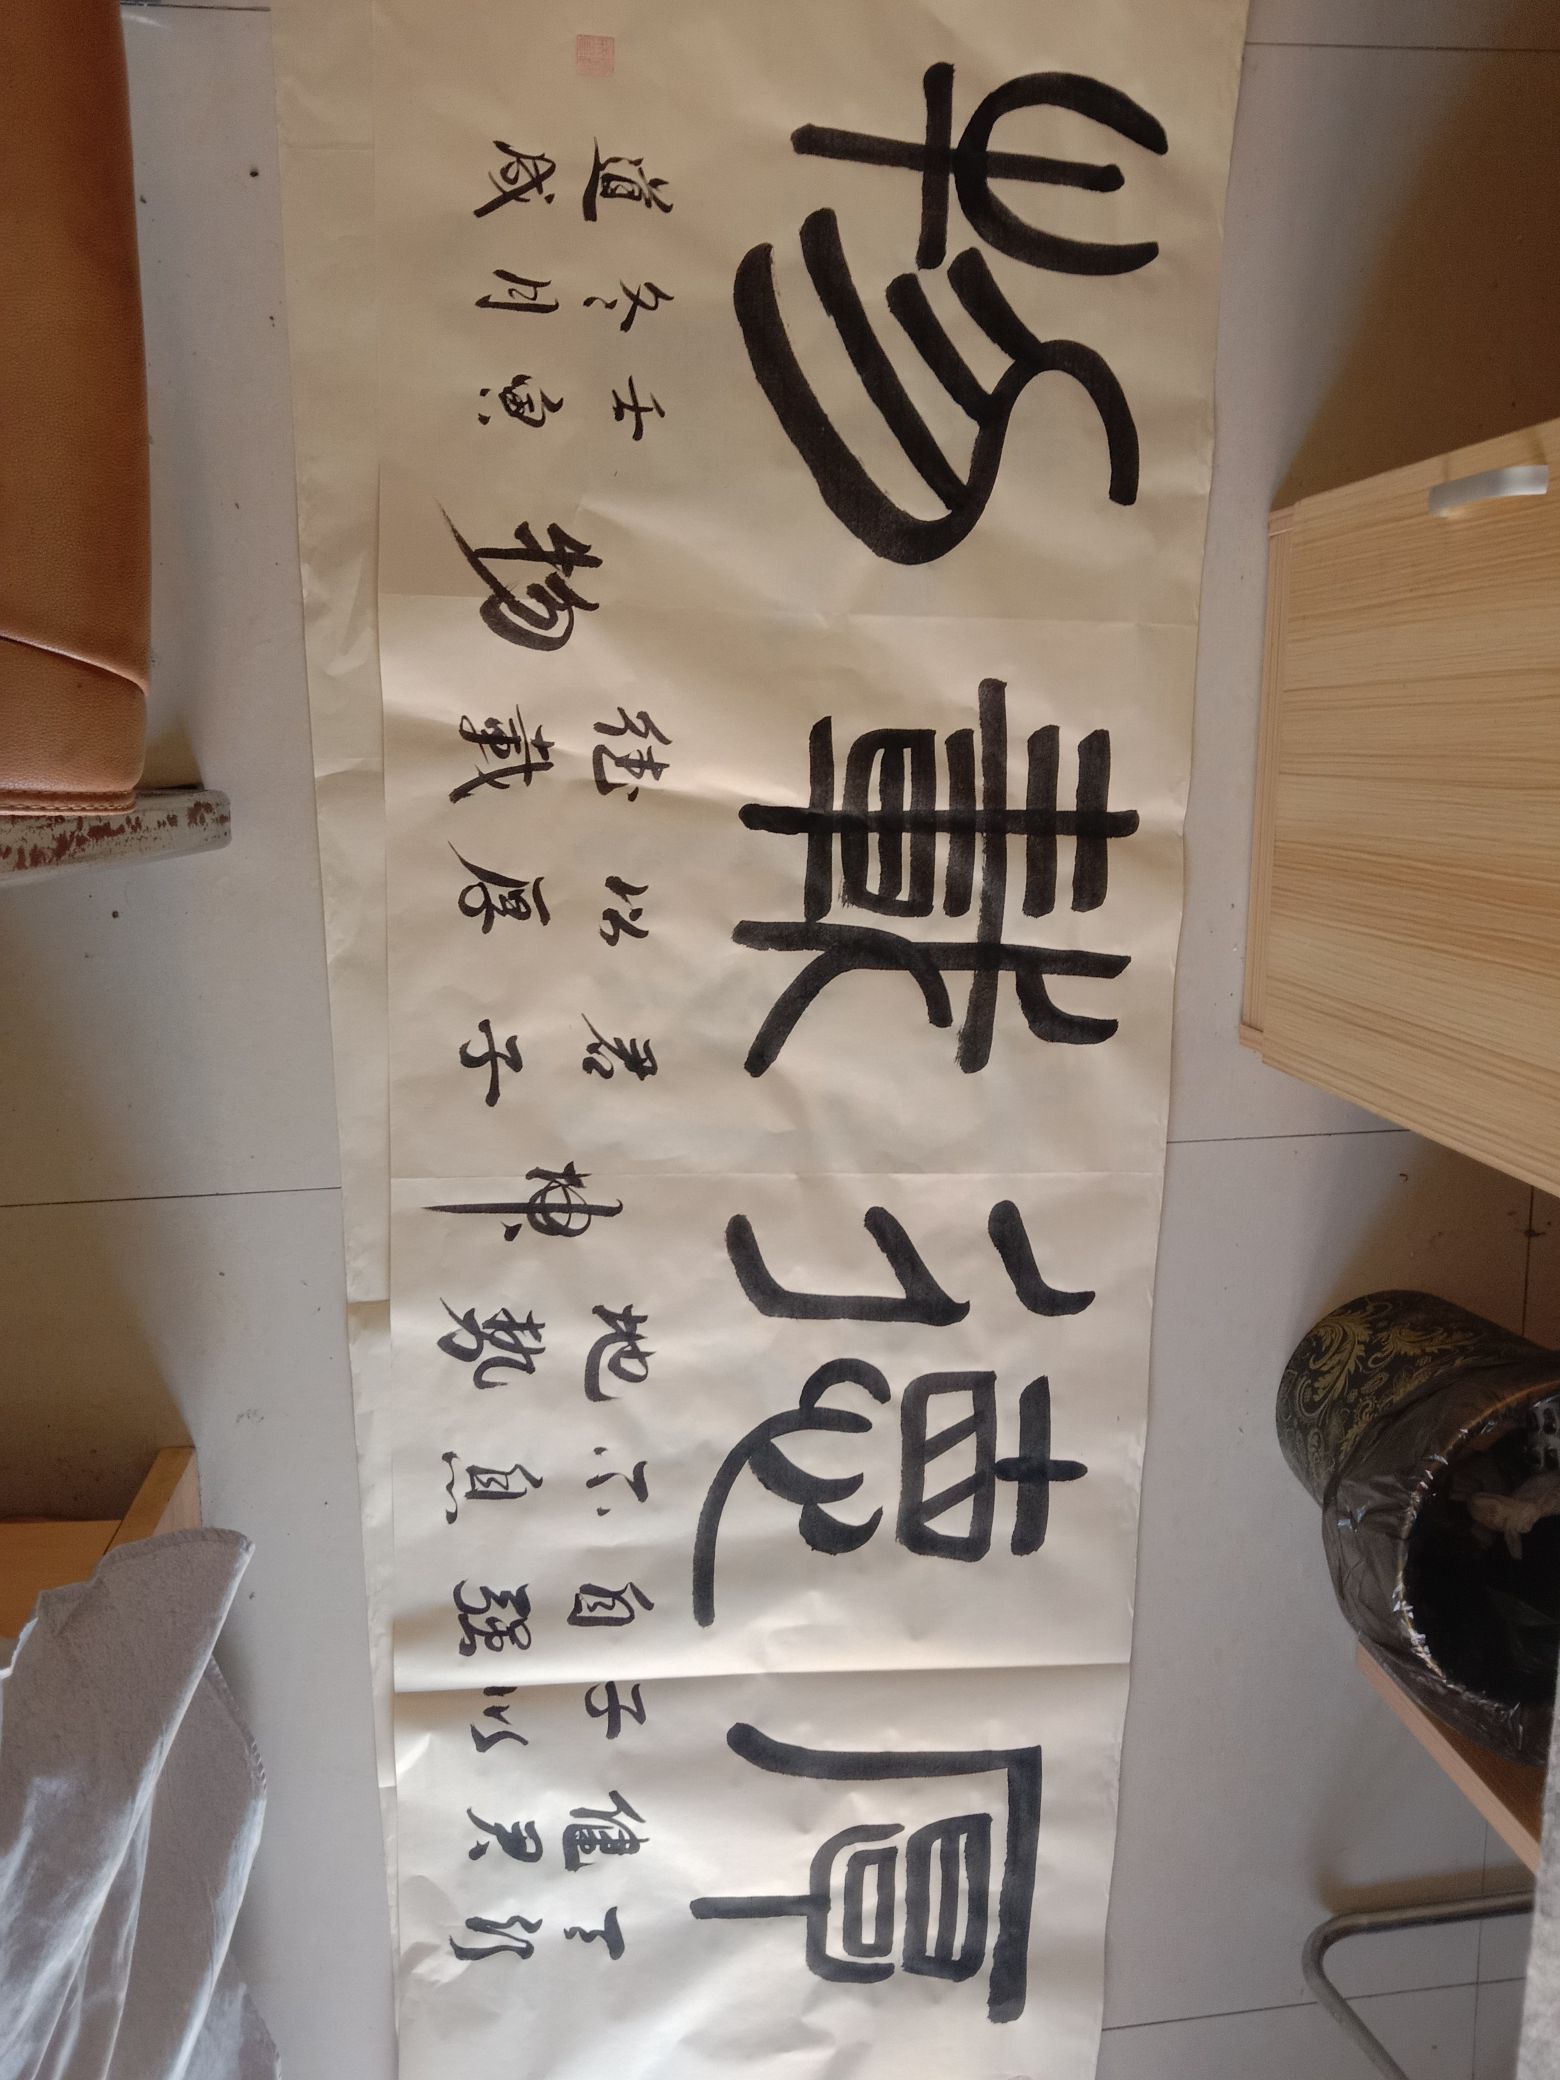 厚德載物
天行
健君
子以
自强
不息
地勢
坤
君子
以厚
德載
物
壬寅
冬月
道